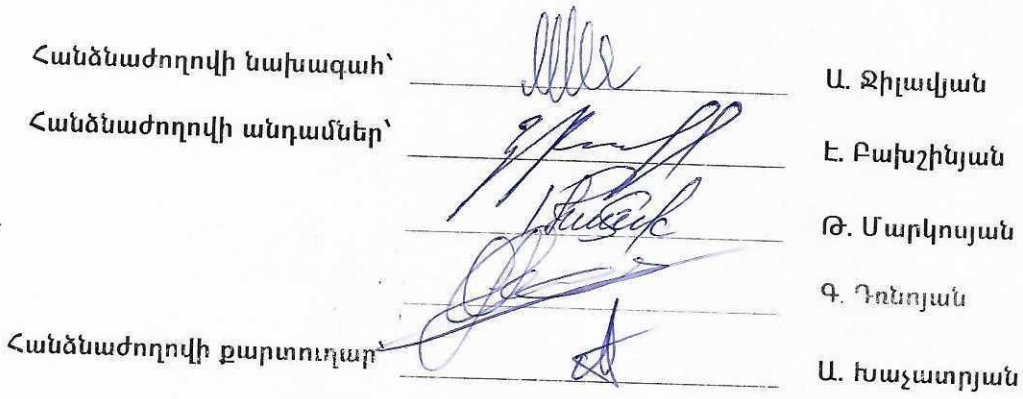 Հանձնաժողովի նախագահ՝ Ա. Ջիլավյան
Հանձնաժողովի անդամներ՝ Է. Բախշինյան
Թ. Մարկոսյան
Գ. Դոնոյան
Հանձնաժողովի քարտուղար՝ Ա. Խաչատրյան